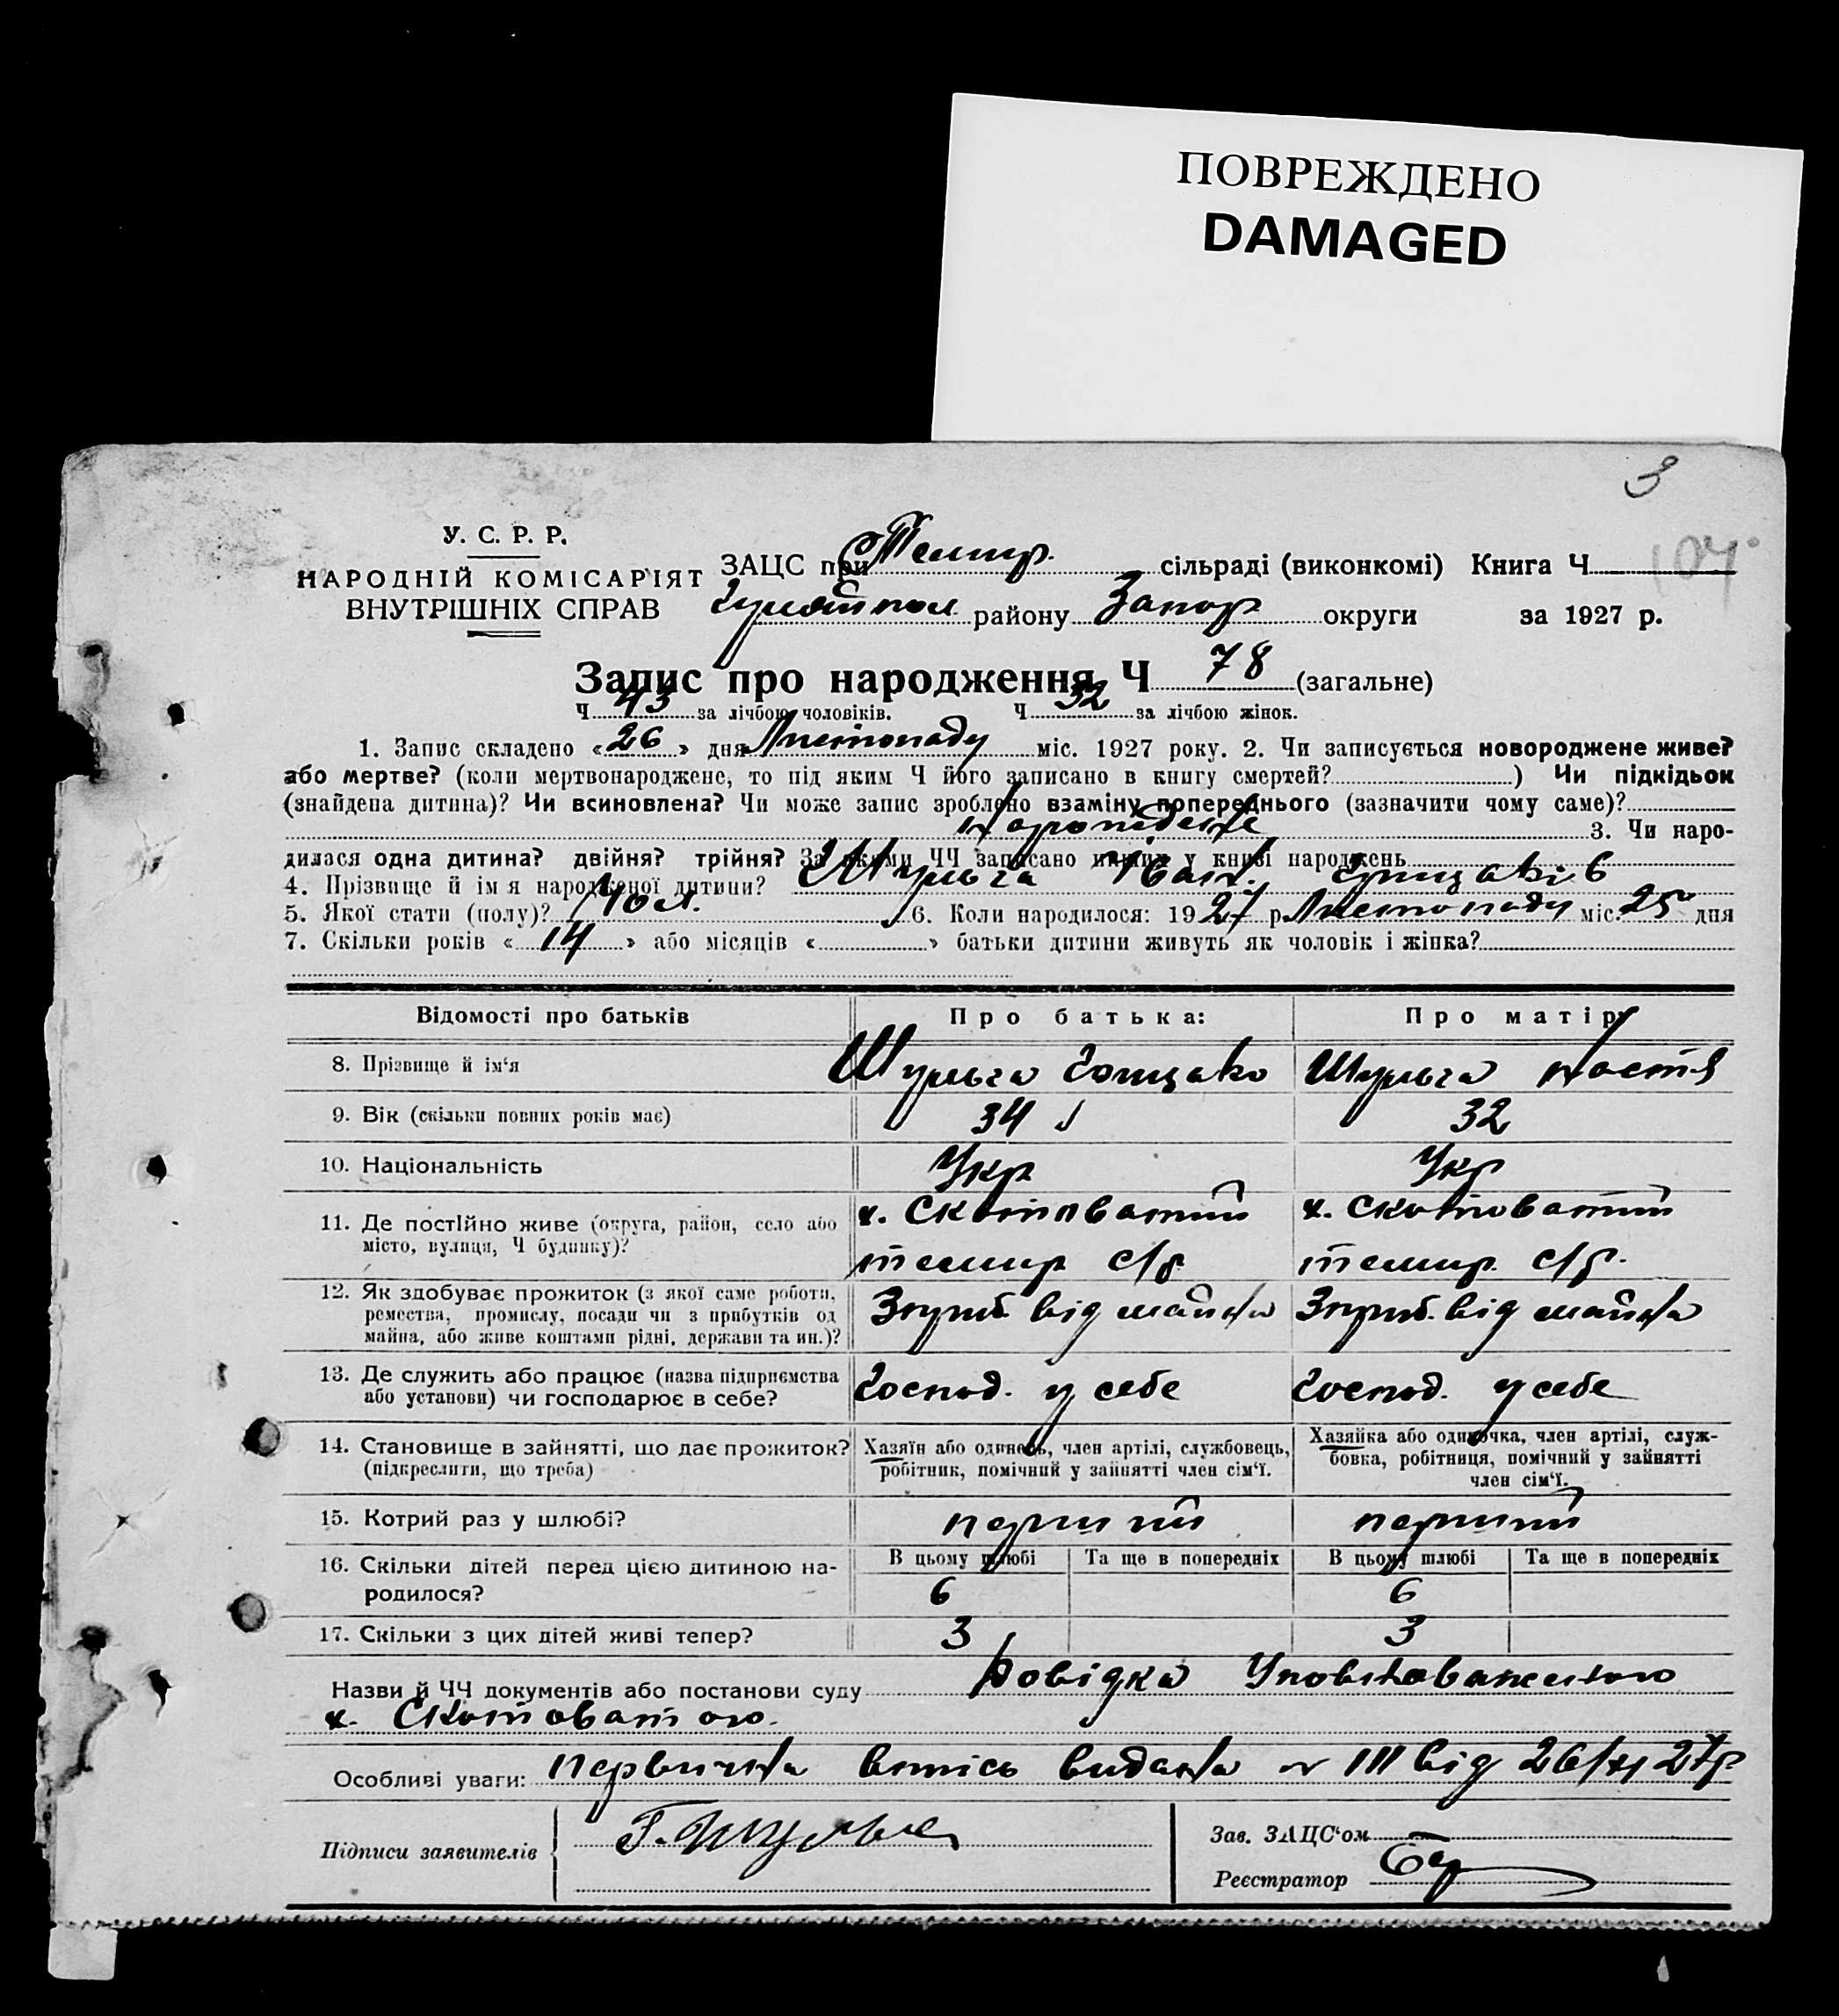 ПОВРЕЖДЕНО
DAMAGED
3
У. С. Р. Р.
НАРОДНІЙ КОМІСАРІЯТ
ВНУТРІШНІХ СПРАВ
ЗАЦС при Темир. сільраді (виконкомі) Книга Ч 104
Гуляйпол району Запор округи за 1927 р.
Запис про народження Ч 78 (загальне)
Ч 43 за лічбою чоловіків. Ч 32 за лічбою жінок.
1. Запис складено «26» дня Листопаду міс. 1927 року. 2. Чи записується новороджене живе?
або мертве? (коли мертвонароджене, то під яким Ч його записано в книгу смертей?) Чи підкідьок
(знайдена дитина)? Чи всиновлена? Чи може запис зроблено взаміну попереднього (зазначити чому саме)?
3. Чи наро-
дилася одна дитина? двійня? трійня? За якими ЧЧ записано инших у книзі народжень
4. Прізвище й ім я народженої дитини? Шульга Іван.
5. Якої стати (полу)? Чол. 6. Коли народилося: 1927 р. Листопаду міс. 25 дня
7. Скільки років «14» або місяців « » батьки дитини живуть як чоловік і жінка?
Відомості про батьків Про батька: Про матір:
8. Прізвище й ім‘я Шульга Шульга Настя
9. Вік (скільки повних років має) 34 32
10. Національність Укр Укр
11. Де постІйно живе (округа, район, село або х. Скотоватий х. Скотоватий
місто, вулиця, Ч будинку)? темир с/р темир. с/р.
12. Як здобуває прожиток (з якої саме роботи,
ремества, промислу, посади чи з прибутків од від майна від майна
майна, або живе коштами рідні, держави та ин.)?
13. Де служить або працює (назва підприємства Господ. у себе Господ. у себе
або установи) чи господарює в себе?
14. Становище в зайнятті, що дає прожиток? Хазяїн або одинець, член артілі, службовець, Хазяйка або одиночка, член артілі, служ-
(підкреслити, що треба) робітник, помічний у зайнятті член сім‘ї. бовка, робітниця, помічний у зайнятті
член сім‘ї.
15. Котрий раз у шлюбі? перший перший
16. Скільки дітей перед цією дитиною на- В цьому шлюбі Та ще в попередніх В цьому шлюбі Та ще в попередніх
родилося? 6 6
17. Скільки з цих дітей живі тепер? 3 3
Назви й ЧЧ документів або постанови суду Довідка Уповноваженого
х. Скотоватого.
Особливі уваги: первична випись видана від 26/XI 27р
Підписи заявителів Г. Шульга Зав. ЗАЦС‘ом
Реєстратор